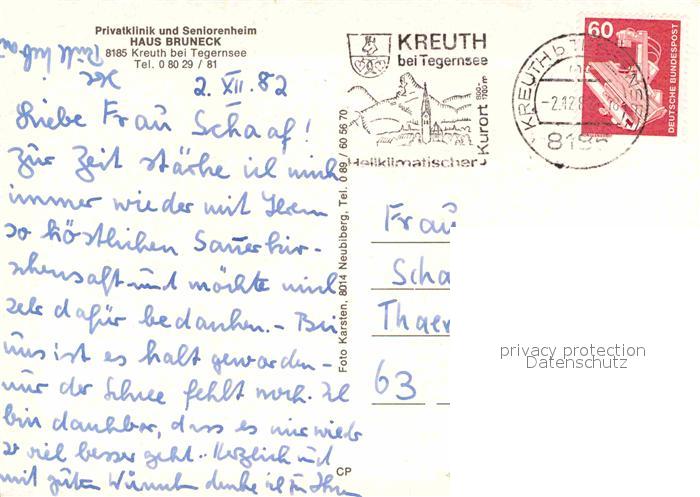 Privatklinik und Seniorenheim
HAUS BRUNECK
8185 Kreuth bei Tegernsee
Tel. 0 80 29 / 81
2. XII. 82
Liebe Frau Schaaf!
Zur Zeit stärke ich mich
immer wieder mit Ihrem
so köstlichen Sauerkir-
schensaft und möchte mich
sehr dafür bedanken. – Bei
uns ist es kalt geworden –
nur der Schnee fehlt noch. Ich
bin dankbar, dass es mir wieder
so viel besser geht. Herzlich und
mit guten Wünschen denke ich an Ihnen
Ihre
Foto Karsten, 8014 Neubiberg, Tel. 0 89 / 60 56 70
CP
KREUTH
bei Tegernsee
Heilklimatischer
Kurort
KREUTH b
-2.12.8
8185
60
DEUTSCHE BUNDESPOST
Frau
Scha
Thaer
63
privacy protection
Datenschutz